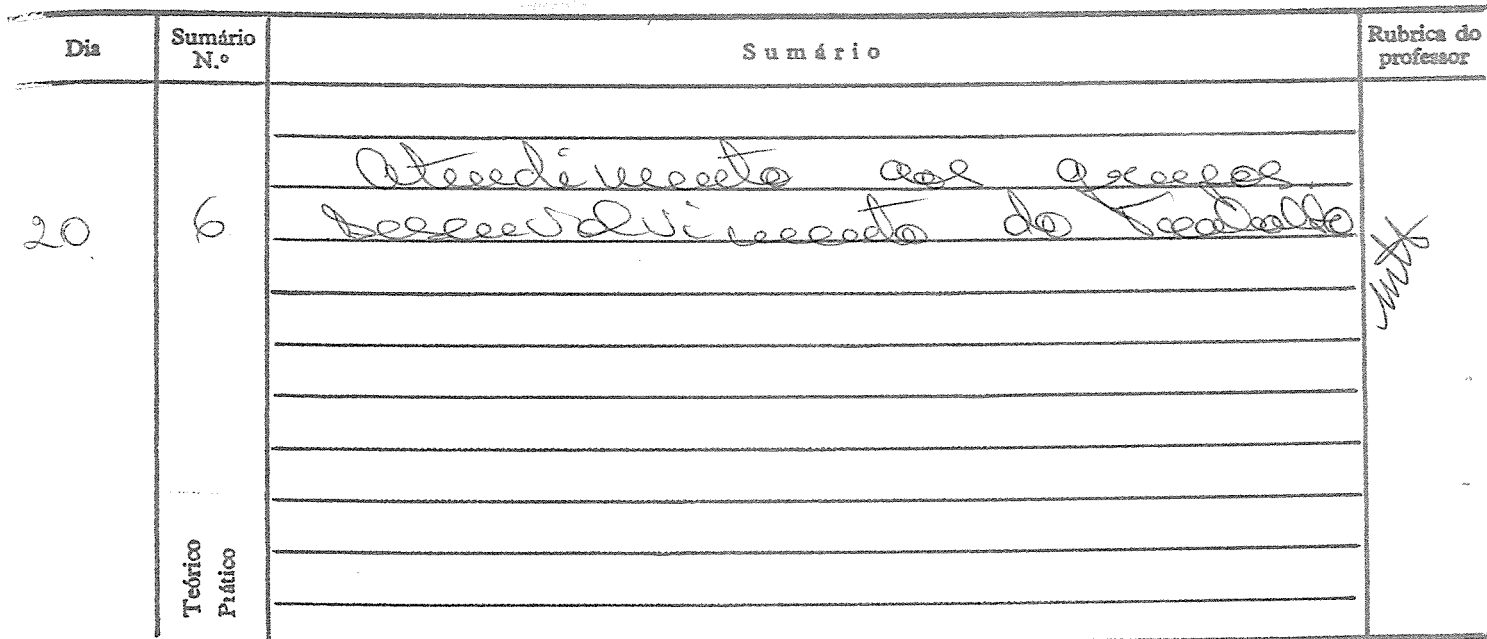 Dia
Sumário N.º
Sumário
Rubrica do professor
20
6
Atendimento aos grupos
Desenvolvimento do Trabalho
Teórico
Prático